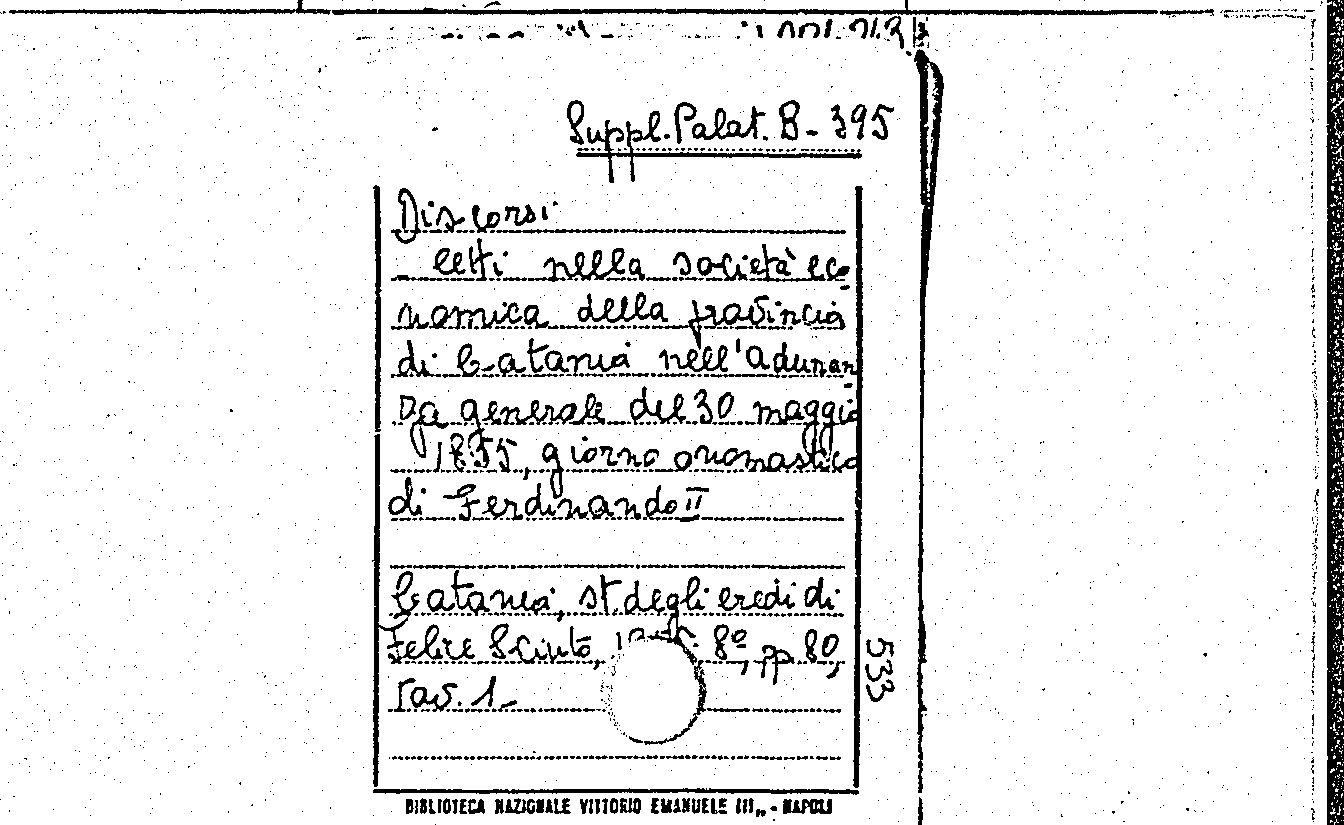 Suppl. Palat. B - 395
Discorsi
- letti nella società eco-
nomica della provincia
di Catania nell'adunan-
za generale del 30 maggio
1855, giorno onomastico
di Ferdinando II
Catania, st. degli eredi di
Felice Sciuto, 8º, pp 80,
tav. 1-
533
BIBLIOTECA NAZIONALE VITTORIO EMANUELE III„ - NAPOLI